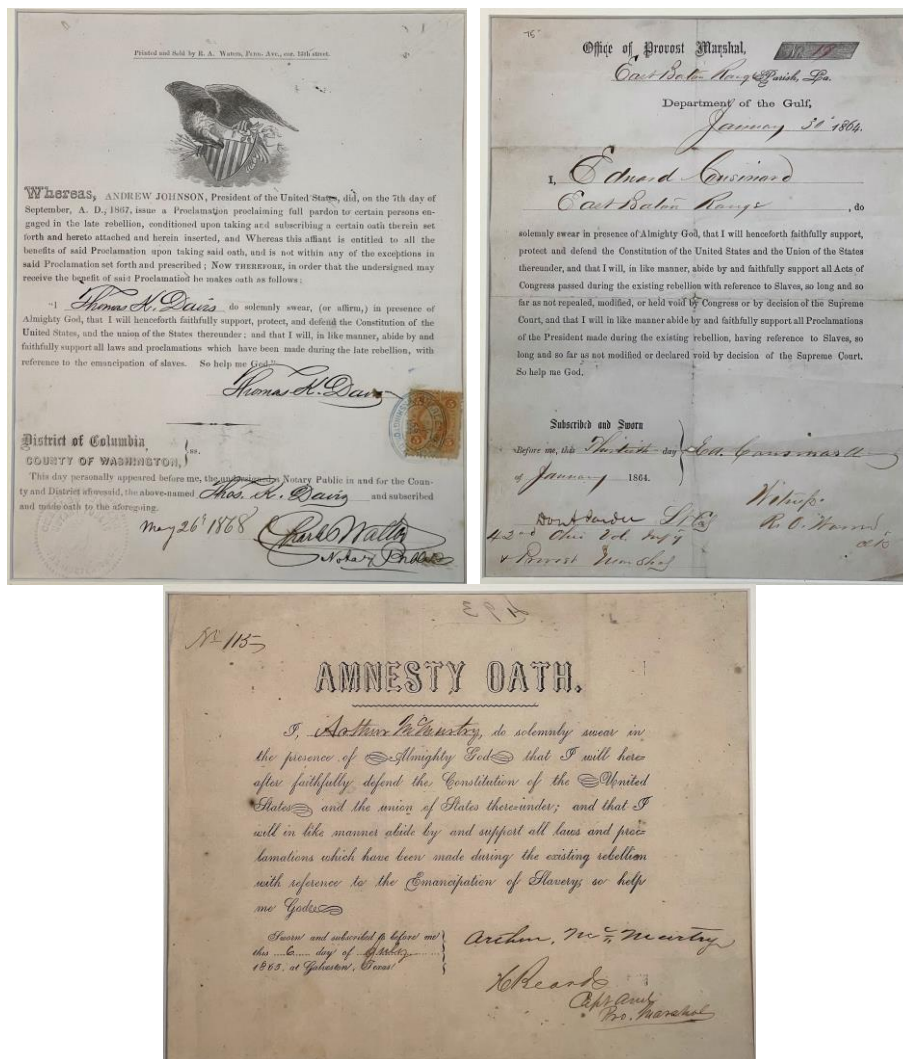 Printed and Sold by R. A. Waters, Penn. Ave., cor. 13th street.
Whereas, ANDREW JOHNSON, President of the United States, did, on the 7th day of
September, A. D., 1867, issue a Proclamation proclaiming full pardon to certain persons en-
gaged in the late rebellion, conditioned upon taking and subscribing a certain oath therein set
forth and hereto attached and herein inserted, and Whereas this affiant is entitled to all the
benefits of said Proclamation upon taking said oath, and is not within any of the exceptions in
said Proclamation set forth and prescribed; NOW THEREFORE, in order that the undersigned may
receive the benefit of said Proclamation he makes oath as follows:
"I Thomas K. Davis do solemnly swear, (or affirm,) in presence of
Almighty God, that I will henceforth faithfully support, protect, and defend the Constitution of the
United States, and the union of the States thereunder; and that I will, in like manner, abide by and
faithfully support all laws and proclamations which have been made during the late rebellion, with
reference to the emancipation of slaves. So help me God."
Thomas K. Davis
District of Columbia,
COUNTY OF WASHINGTON, } ss.
This day personally appeared before me, the undersigned a Notary Public in and for the Coun-
ty and District aforesaid, the above-named Thos. K. Davis and subscribed
and made oath to the aforegoing.
May 26th 1868
Charles Walter
Notary Public
Office of Provost Marshal,
No 19
East Baton Rouge Parish, La.
Department of the Gulf,
January 30th 1864.
I, Edward Cousinard
East Baton Rouge, do
solemnly swear in presence of Almighty God, that I will henceforth faithfully support,
protect and defend the Constitution of the United States and the Union of the States
thereunder, and that I will, in like manner, abide by and faithfully support all Acts of
Congress passed during the existing rebellion with reference to Slaves, so long and so
far as not repealed, modified, or held void by Congress or by decision of the Supreme
Court, and that I will in like manner abide by and faithfully support all Proclamations
of the President made during the existing rebellion, having reference to Slaves, so
long and so far as not modified or declared void by decision of the Supreme Court.
So help me God.
Subscribed and Sworn
Before me, this Thirtieth day
of January 1864.
Ed. Cousinard
Witness
42nd Ohio Vol. Infy
& Provost Marshal
No 115
AMNESTY OATH.
I, Arthur McMurtry, do solemnly swear in
the presence of Almighty God that I will here=
after faithfully defend the Constitution of the United
States and the union of States thereunder; and that I
will in like manner abide by and support all laws and proc=
lamations which have been made during the existing rebellion
with reference to the Emancipation of Slavery, so help
me God
Sworn and subscribed to before me
this 6 day of July
1865, at Galveston, Texas
Arthur McMurtry
Pro. Marshal